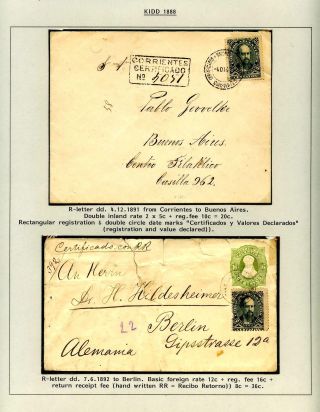 KIDD 1888
CORRIENTES
CERTIFICADO
Nº 5071
Pablo
Buenos Aires.
Centro Filatélico
Casilla 962.
R-letter dd. 4.12.1891 from Corrientes to Buenos Aires.
Double inland rate 2 x 5c + reg.fee 10c = 20c.
Rectangular registration & double circle date marks "Certificados y Valores Declarados"
(registration and value declared)).
Certificado con RR
An Herrn
H. Hildesheimer
12
Berlin
Gipsstrasse 12a
Alemania
R-letter dd. 7.6.1892 to Berlin. Basic foreign rate 12c + reg. fee 16c +
return receipt fee (hand written RR = Recibo Retorno)) 8c = 36c.